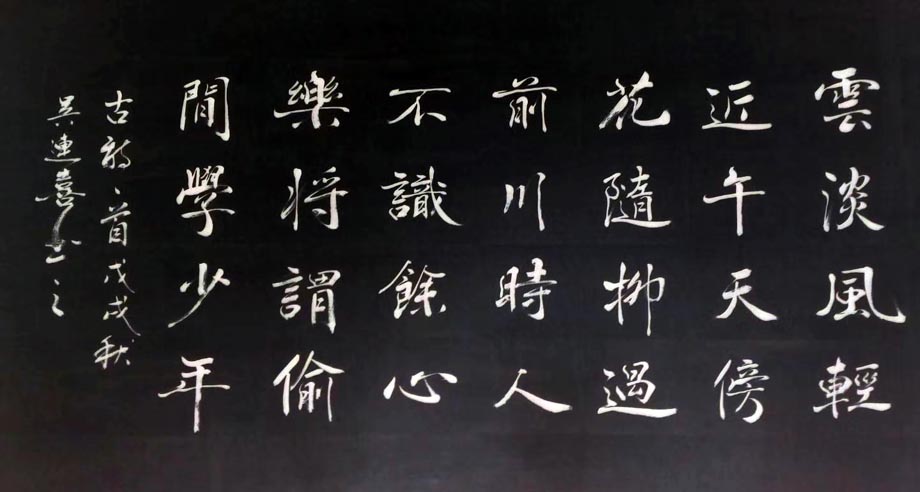 雲淡風輕
近午天傍
花隨柳過
前川時人
不識餘心
樂将謂偷
閒學少年
古詩一首戊戌秋
吴連喜书之